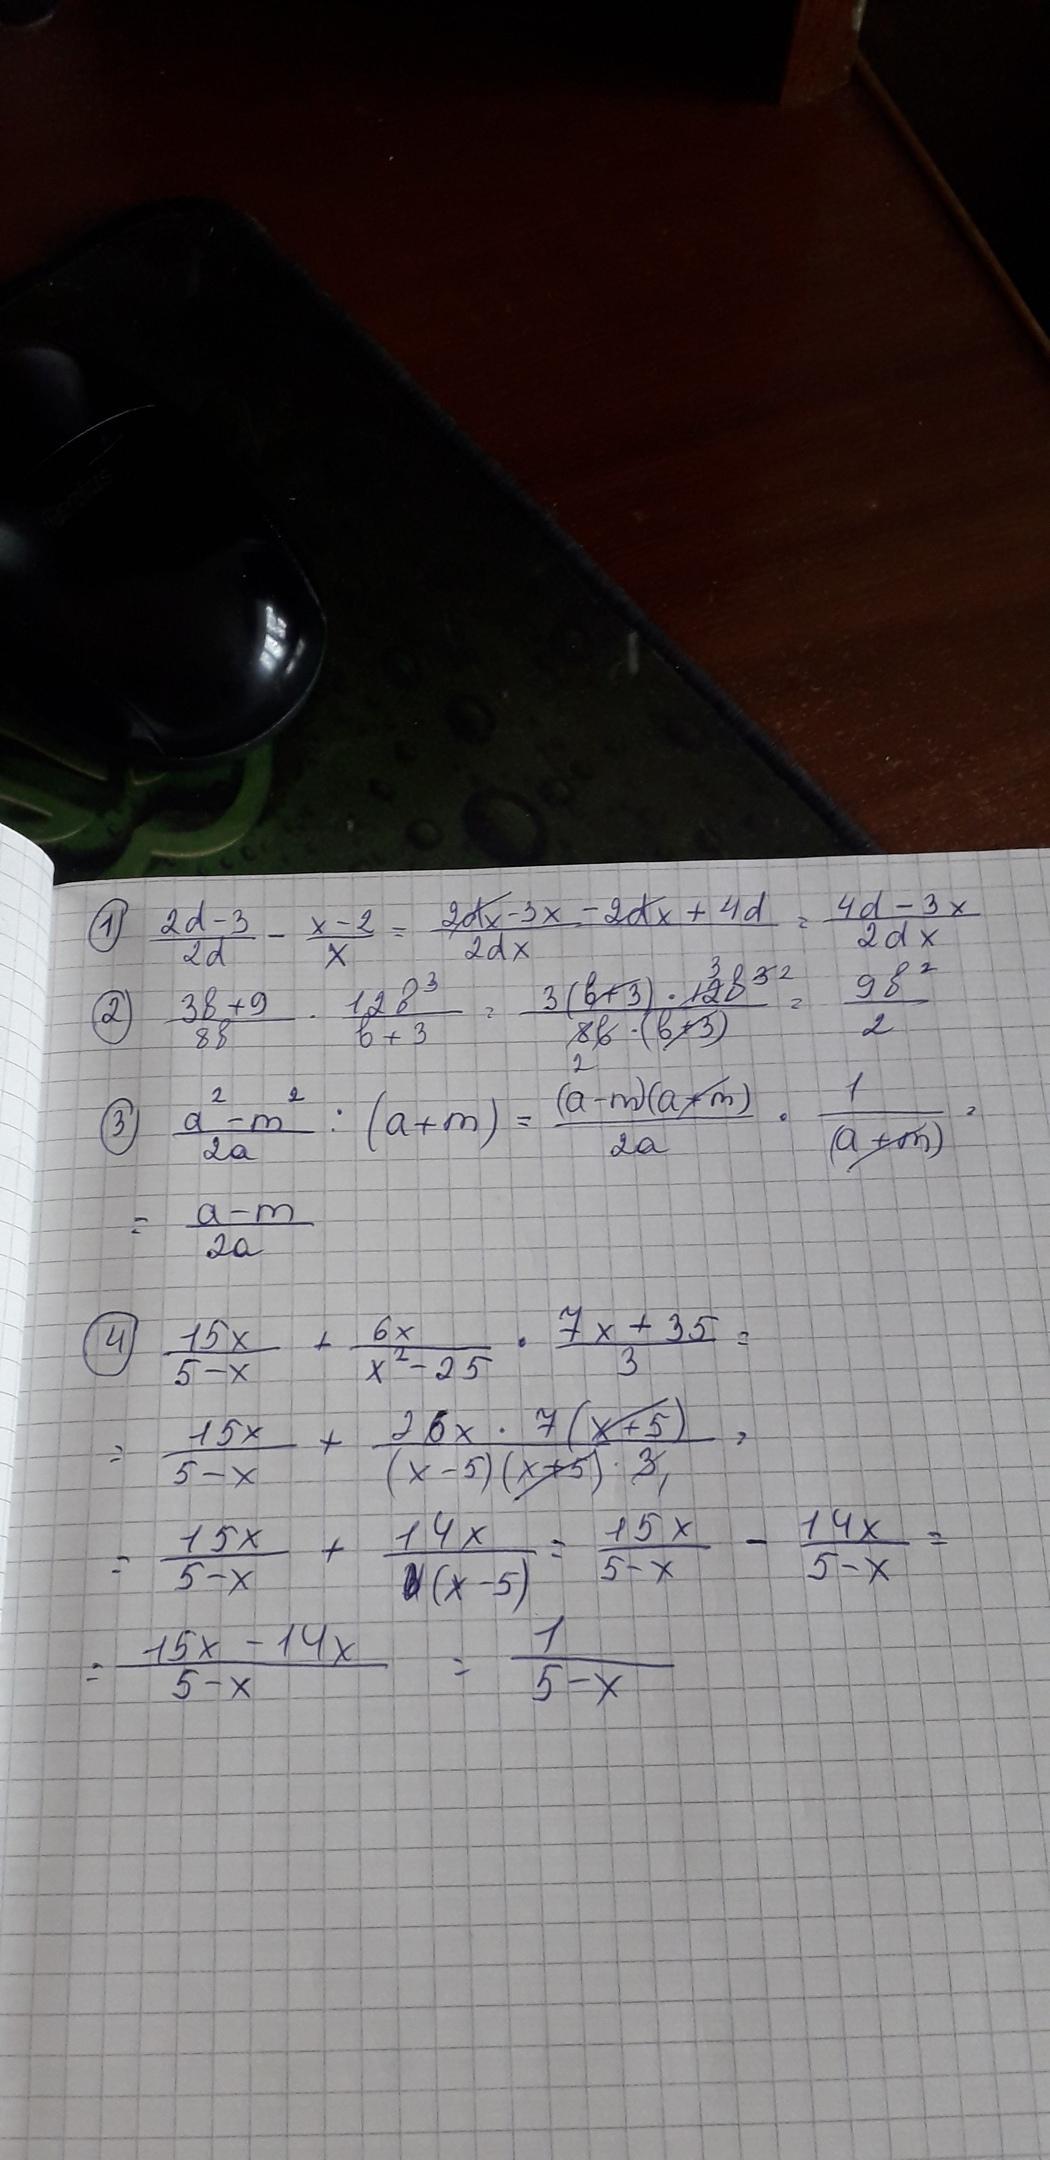 ① (2d-3)/(2d) - (x-2)/x = (2dx-3x-2dx+4d)/(2dx) = (4d-3x)/(2dx)
② (3b+9)/(8b) · (12b³)/(b+3) = (3(b+3)·³12b³ ²)/(₂8b·(b+3)) = (9b²)/2
③ (a²-m²)/(2a) : (a+m) = ((a-m)(a+m))/(2a) · 1/(a+m) =
= (a-m)/(2a)
④ (15x)/(5-x) + (6x)/(x²-25) · (7x+35)/3 =
= (15x)/(5-x) + (26x·7(x+5))/((x-5)(x+5)·3₁) =
= (15x)/(5-x) + (14x)/((x-5)) = (15x)/(5-x) - (14x)/(5-x) =
= (15x-14x)/(5-x) = 1/(5-x)